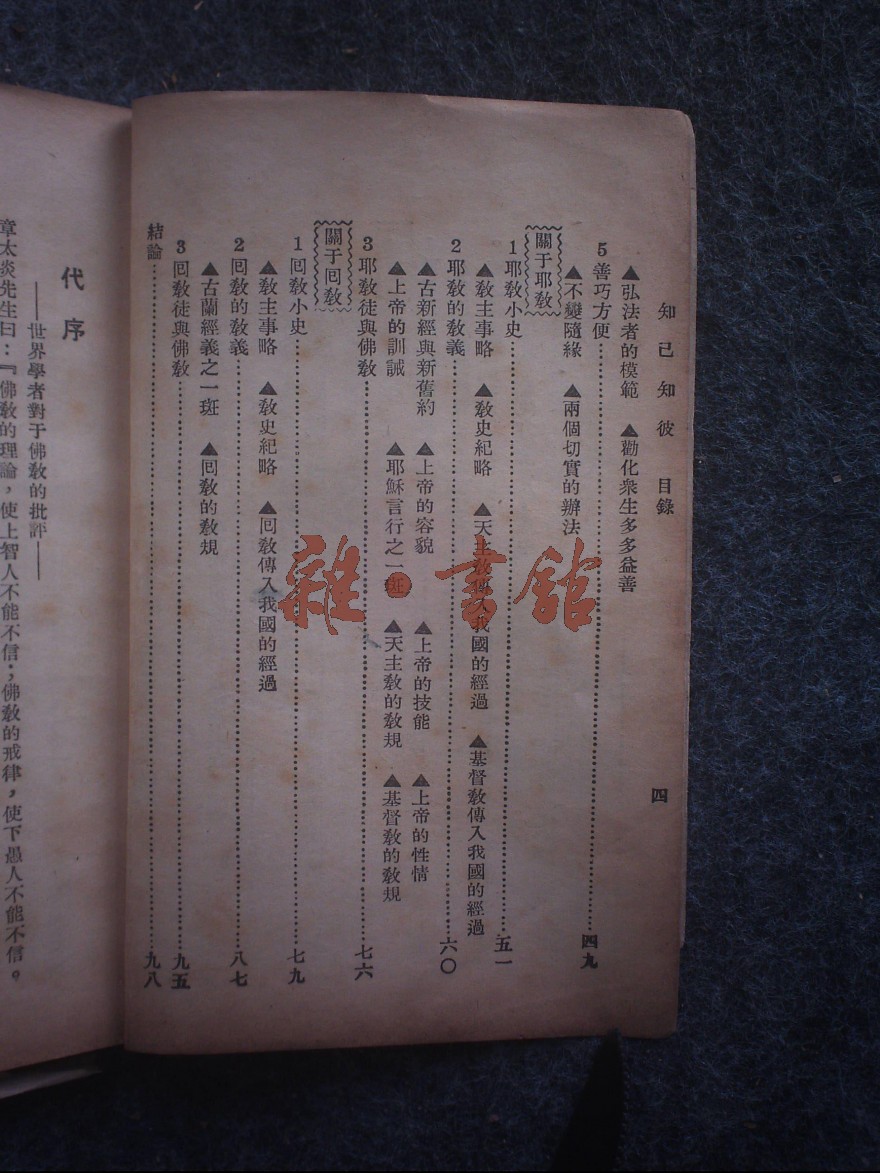 知己知彼　目錄　四
▲弘法者的模範　▲勸化衆生多多益善
5善巧方便……四九
▲不變隨緣　▲兩個切實的辦法
關于耶敎
1耶敎小史……五一
▲敎主事略　▲敎史紀略　▲天主敎傳入我國的經過　▲基督敎傳入我國的經過
2耶敎的敎義……六〇
▲古新經與新舊約　▲上帝的容貌　▲上帝的技能　▲上帝的性情
▲上帝的訓誡　▲耶穌言行之一斑　▲天主敎的敎規　▲基督敎的敎規
3耶敎徒與佛敎……七六
關于囘敎
1囘敎小史……七九
▲敎主事略　▲敎史紀略　▲囘敎傳入我國的經過
2囘敎的敎義……八七
▲古蘭經義之一斑　▲囘敎的敎規
3囘敎徒與佛敎……九五
結論……九八
代序
——世界學者對于佛敎的批評——
章太炎先生曰：『佛敎的理論，使上智人不能不信；佛敎的戒律，使下愚人不能不信。
雜·書館